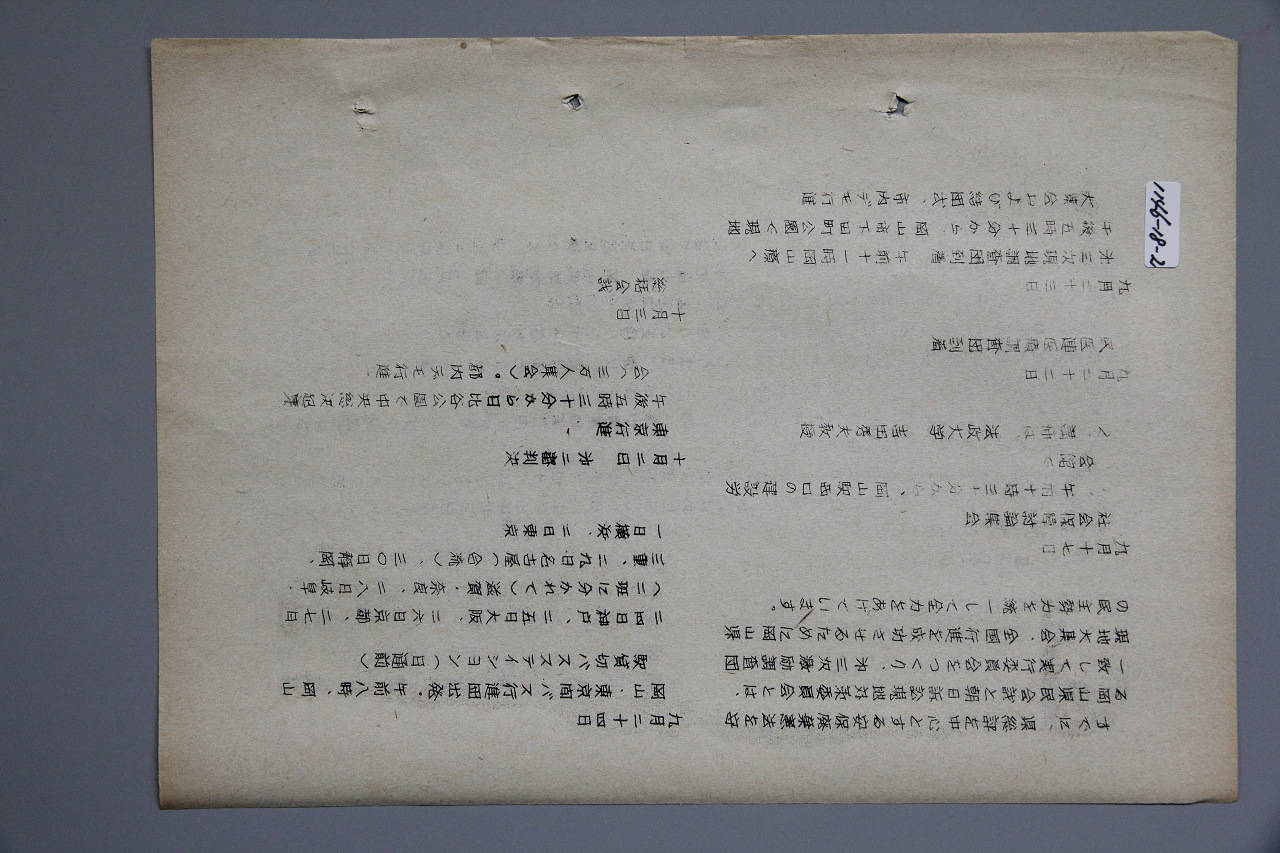 すでに、県総評を中心とする安保廃棄憲法を守
る岡山県民会議と朝日訴訟現地対策委員会とは、
一致して実行委員会をつくり、才三次激励調査団
現地大集会、全国行進を成功させるために岡山県
の民主勢力を統一して全力をあげています。
九月十七日
社会保障討論集会
、午前十時三十分から、岡山駅西口の建設労
会館で
、講師は、法政大学 吉田秀夫教授
九月二十二日
民医連医療調査団到着
九月二十三日
才三次現地調査団到着 午前十一時岡山療へ
午後五時三十分から、岡山市下田町公園で現地
大集会および結団式、市内デモ行進
九月二十四日
岡山・東京間バス行進団出発・午前八時、岡山
駅貸切バスステイション(日通前)
二四日神戸、二五日大阪、二六日京都、二七日
(二班に分かれて)滋賀・奈良、二八日岐阜・
三重、二九日名古屋(合流)、三〇日静岡、
一日横浜、二日東京
十月二日 才二審判決
東京行進、
午後五時三十分から日比谷公園で中央総決起集
会(三万人集会)。都内デモ行進
十月三日
総括会議
1146-18-2